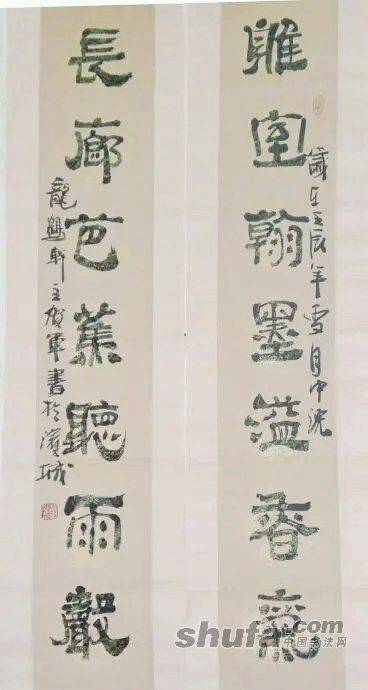 雅室翰墨溢香
歲在壬辰年雪月中浣
長廊芭蕉聽雨聲
軒主賀軍書於濱城
shufa
中国书法网